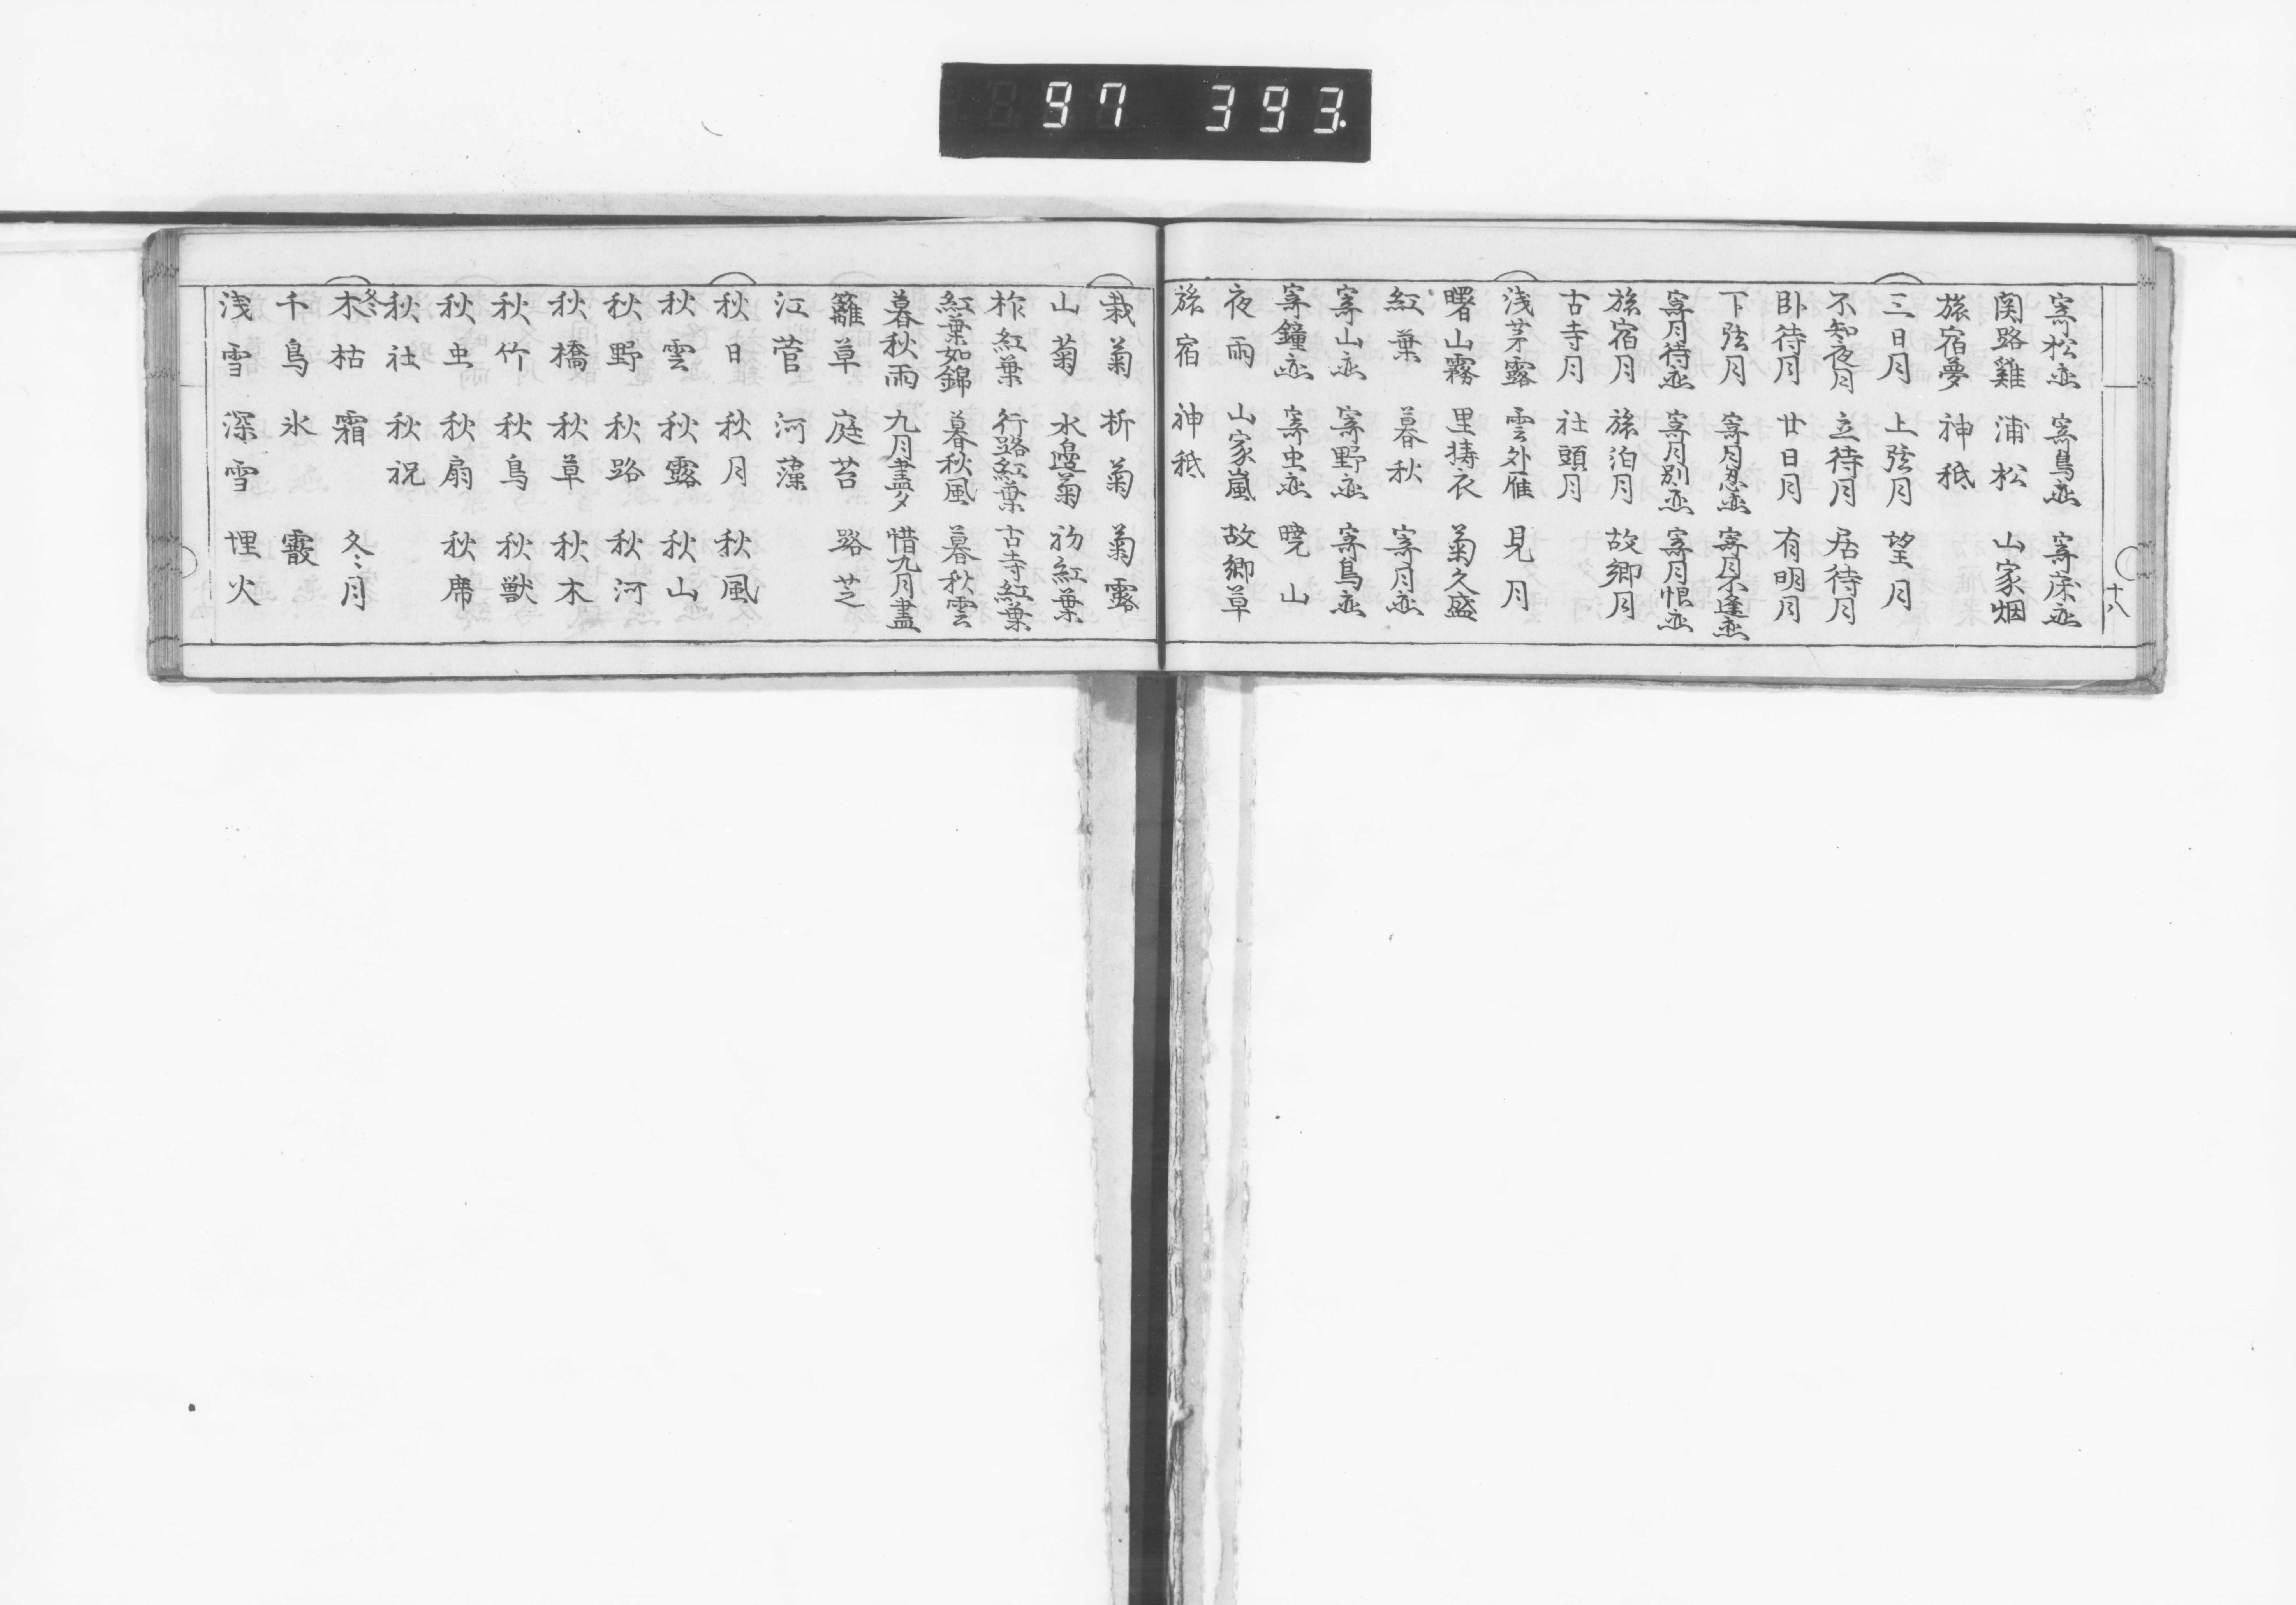 97 393.
十八
寄松恋 寄鳥恋 寄床恋
関路鶏 浦松 山家烟
旅宿夢 神祇
三日月 上弦月 望月
不知夜月 立待月 居待月
臥待月 廿日月 有明月
下弦月 寄月忍恋 寄月不逢恋
寄月待恋 寄月別恋 寄月恨恋
旅宿月 旅泊月 故郷月
古寺月 社頭月
浅茅露 雲外雁 見月
曙山霧 里擣衣 菊久盛
紅葉 暮秋 寄月恋
寄山恋 寄野恋 寄鳥恋
寄鐘恋 寄虫恋 暁山
夜雨 山家嵐 故郷草
旅宿 神祇
栽菊 折菊 菊露
山菊 水邊菊 初紅葉
柞紅葉 行路紅葉 古寺紅葉
紅葉如錦 暮秋風 暮秋雲
暮秋雨 九月盡夕 惜九月盡
籬草 庭苔 路芝
江菅 河藻
秋日 秋月 秋風
秋雲 秋露 秋山
秋野 秋路 秋河
秋橋 秋草 秋木
秋竹 秋鳥 秋獣
秋虫 秋扇 秋席
秋社 秋祝
冬
木枯 霜 冬月
千鳥 氷 霰
浅雪 深雪 埋火